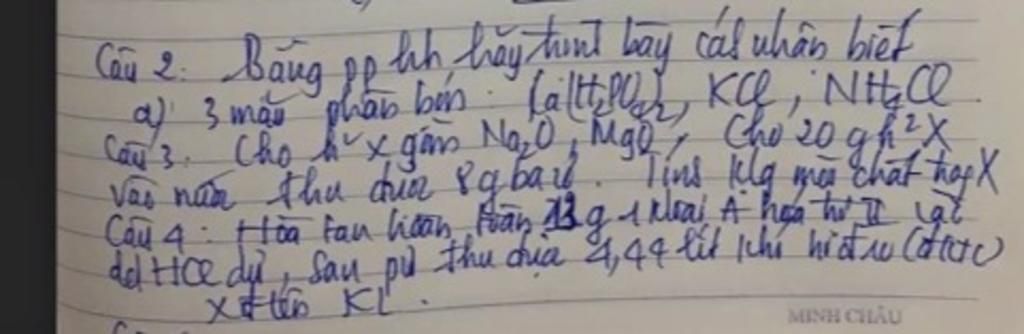 Câu 2: Bằng pp hh hãy trình bày cách nhận biết
a) 3 mẫu phân bón: Ca(H₂PO₄)₂, KCl, NH₄Cl.
Câu 3. Cho h² X gồm Na₂O, MgO, Cho 20 g h² X
vào nước thu được 8g bazơ. Tính klg mỗi chất X
Câu 4: Hòa tan hoàn toàn 13 g 1 kloại A hóa trị II
dd HCl dư, sau pứ thu được 4,44 lít khí hiđro (đktc)
Xđ tên KL.
MINH CHÂU